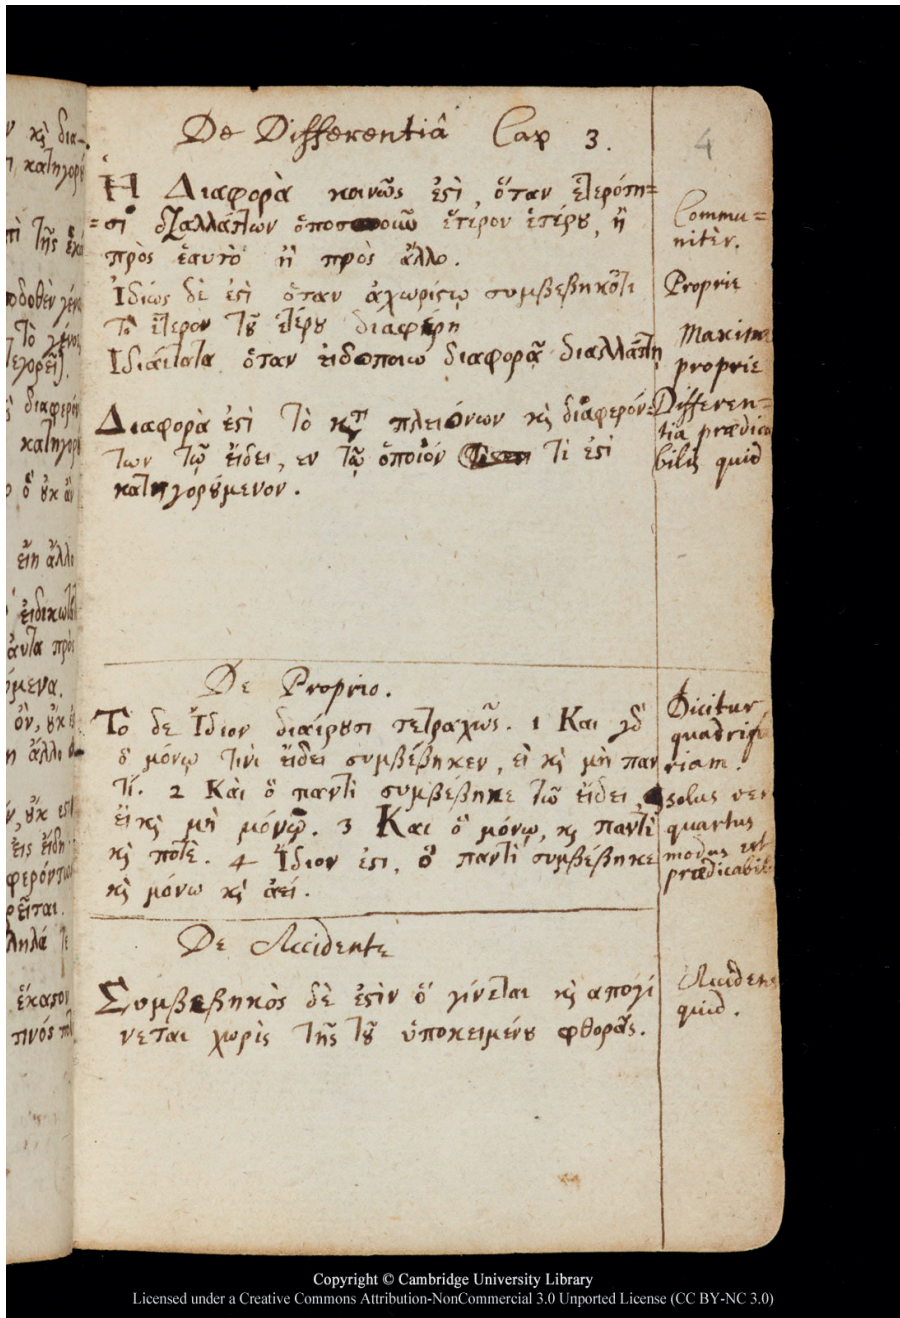 De Differentiâ Cap 3.
4
Ἡ Διαφορὰ κοινῶς ἐςὶ, ὅταν ἑτερότη=
=σι διαλλάττων ὁποσοιοιῶ ἕτερον ἑτέρȣ, ἢ
πρὸς ἑαυτὸ ἢ πρὸς ἄλλο.
Commu=
nitèr.
Ἰδίως δὲ ἐςὶ ὅταν ἀχωρίςῳ συμβεβηκότι
Τὸ ἕτερον τȣ̃ ἑτέρȣ διαφέρη
Proprie
Ἰδιαίτατα ὅταν ἐιδοποιῶ διαφορᾷ διαλλάττη
Maxime
proprie
Διαφορὰ ἐςὶ τὸ κτ πλειόνων κ̀ διαφερόν=
των τῷ ἔιδει, εν τῷ ὁποῖόν τὶ ἐςὶ
κατηγορȣ́μενον.
Differen=
tia prædica
bilis quid
De Proprio.
Τὸ δε Ἴδιον διαίρȣσι τετραχῶς. 1 Και γὸ
ὃ μόνῳ τινὶ ἔιδει συμβέβηκεν, εἰ κ̀ μὴ παν
τί. 2 Κὰι ὃ παντὶ συμβέβηκε τῶ ἔιδει,
ἔι κ̀ μὴ μόνῳ. 3 Και ὃ μόνῳ, κ̀ παντὶ
κ̀ ποτὲ. 4 Ἴδιον ἐςι, ὃ παντὶ συμβέβηκε
κ̀ μόνω κ̀ ἀεί.
Dicitur
quadrifa
riam.
solus ver
quartus
modus est
prædicabil
De Accidente
Συμβεβηκὸς δὲ ἐςὶν ὃ γίνεται κ̀ απογί
νεται χωρὶς τῆς τȣ̃ ὑποκειμένȣ φθορᾶς.
Accidens
quid.
Copyright © Cambridge University Library
Licensed under a Creative Commons Attribution-NonCommercial 3.0 Unported License (CC BY-NC 3.0)